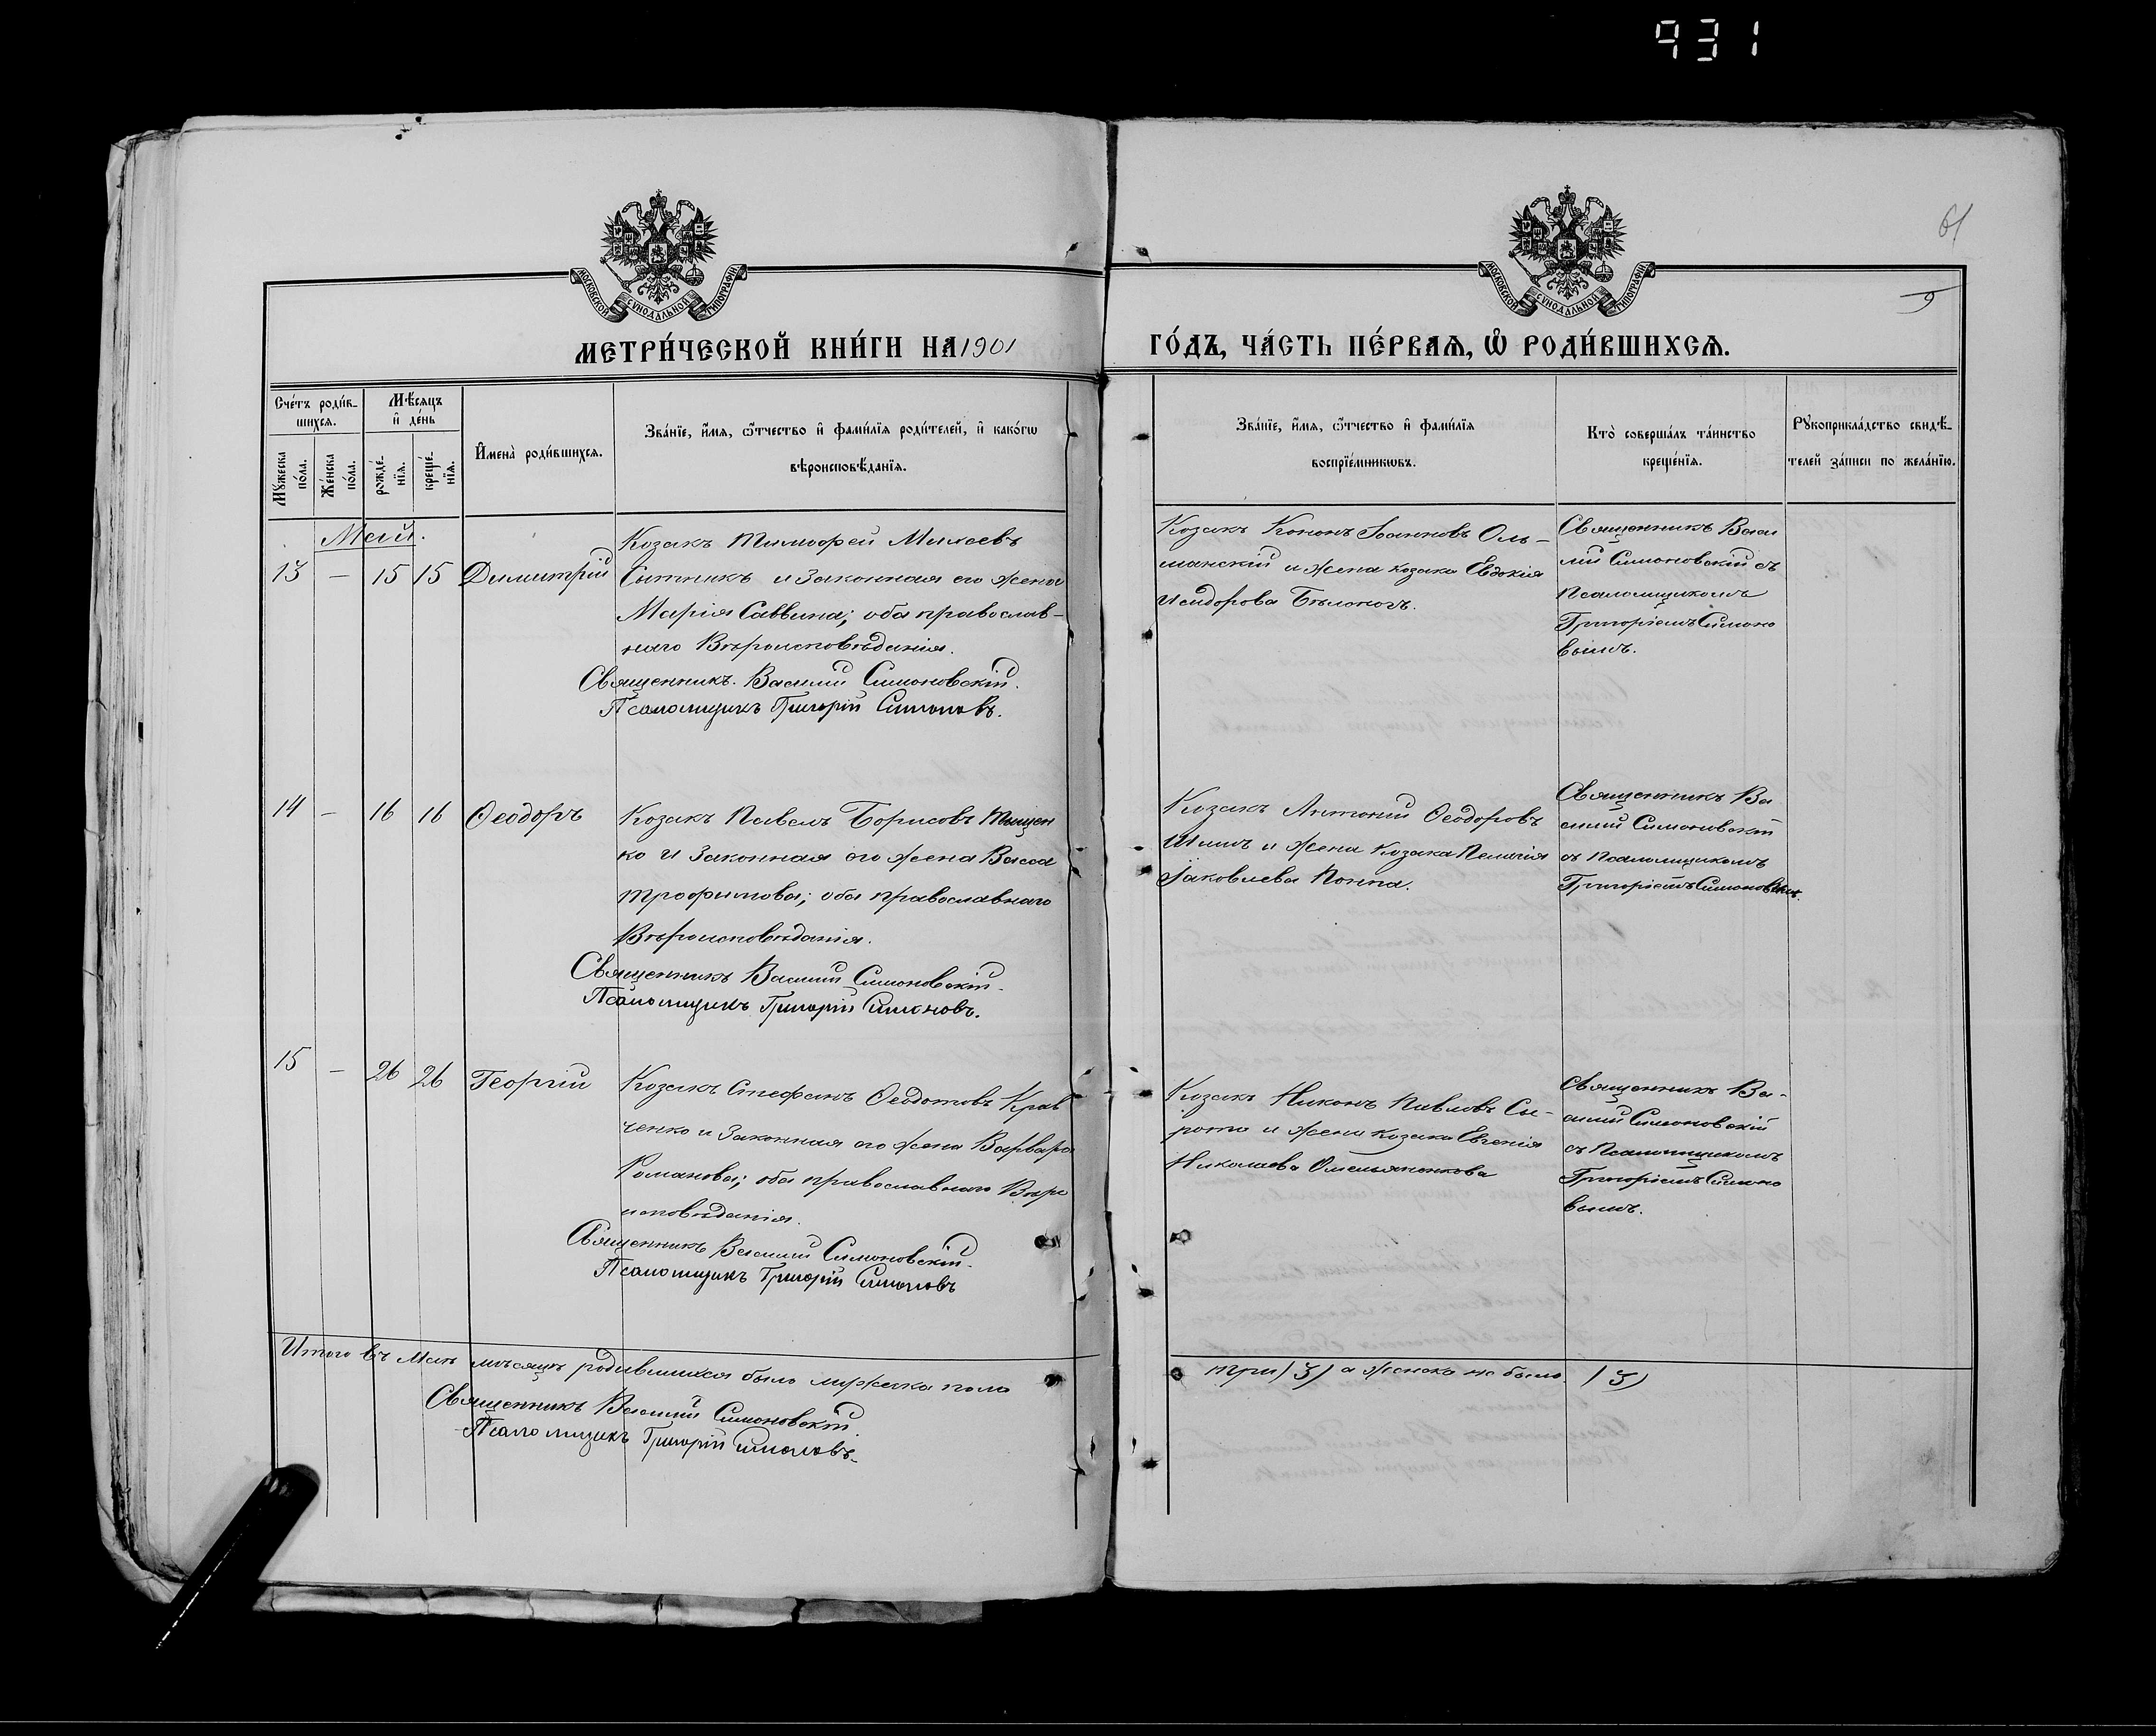 931
61
9
МОСКОВСКОЙ СУНОДАЛЬНОЙ ТИПОГРАФІИ
МОСКОВСКОЙ СУНОДАЛЬНОЙ ТИПОГРАФІИ
МЕТРИ́ЧЕСКОЙ КНИ́ГИ НА 1901
ГО́ДЪ, ЧА́СТЬ ПЕ́РВАѦ, Ѡ РОДИ́ВШИХСѦ.
Сче́тъ роди́в-
шихсѧ.
Мꙋ́жеска по́ла.
Же́нска по́ла.
Мѣ́сѧцъ
и҆ де́нь
рожде́-
нїѧ.
креще́-
нїѧ.
И҆мена̀ роди́вшихсѧ.
Зва́нїе, и҆́мѧ, ѻ҆́тчество и҆ фами́лїѧ роди́телей, и҆ како́гѡ
вѣроисповѣ́данїѧ.
Зва́нїе, и҆́мѧ, ѻ҆́тчество и҆ фами́лїѧ
воспрїе́мникѡвъ.
Кто̀ соверша́лъ та́инство
креще́нїѧ.
Рꙋкоприкла́дство свидѣ́-
телей за́писи по жела́нїю.
Май.
13 — 15 15 Димитрій
Козакъ Тимофей Михеевъ
Сытникъ и законная его жена
Марія Саввина; оба православ-
наго Вѣроисповѣданія.
Священникъ Василій Симоновскій.
Псаломщикъ Григорій Симоновъ.
Козакъ Кононъ Іоанновъ Оль-
шанскій и жена козака Евдокія
Исидорова Бѣлоногъ.
Священникъ Васи
лій Симоновскій съ
Псаломщикомъ
Григоріемъ Симоно
вымъ.
14 — 16 16 Ѳеодоръ
Козакъ Павелъ Борисовъ Тищен
ко и законная его жена Васса
Трофимова; оба православнаго
Вѣроисповѣданія.
Священникъ Василій Симоновскій.
Псаломщикъ Григорій Симоновъ.
Козакъ Антоній Ѳеодоровъ
и жена козака Пелагія
Іаковлева Поппа.
Священникъ Ва
силій Симоновскій
съ Псаломщикомъ
Григоріемъ Симоновымъ.
15 — 26 26 Георгій
Козакъ Стефанъ Ѳеодотовъ Крав
ченко и законная его жена Варвара
Романова; оба православнаго Вѣро
исповѣданія.
Священникъ Василій Симоновскій.
Псаломщикъ Григорій Симоновъ
Козакъ Никонъ Павловъ Си-
рота и жена козака Евгенія
Николаева Омельяненкова
Священникъ Ва-
силій Симоновскій
съ Псаломщикомъ
Григоріемъ Симоно
вымъ.
Итого въ Маѣ мѣсяцѣ родившихся было мужеска пола
три (3) а женска не было (3)
Священникъ Василій Симоновскій.
Псаломщикъ Григорій Симоновъ.